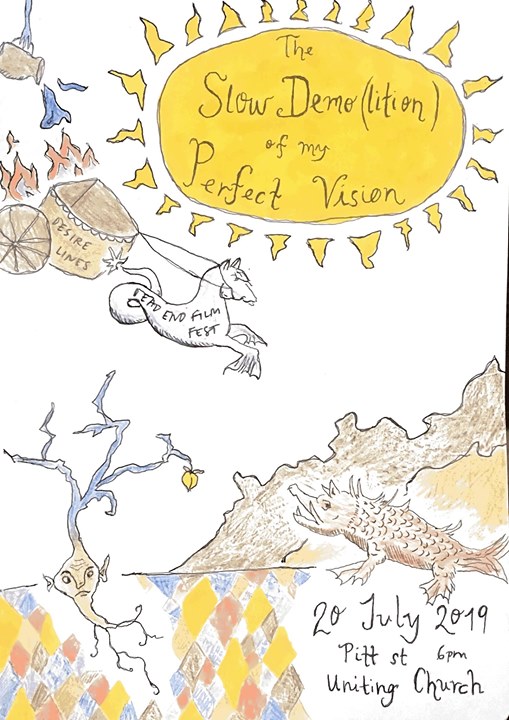 The
Slow Demo(lition)
of my
Perfect Vision
DESIRE
LINES
DEAD END FILM
FEST
20 July 2019
Pitt st 6pm
Uniting Church